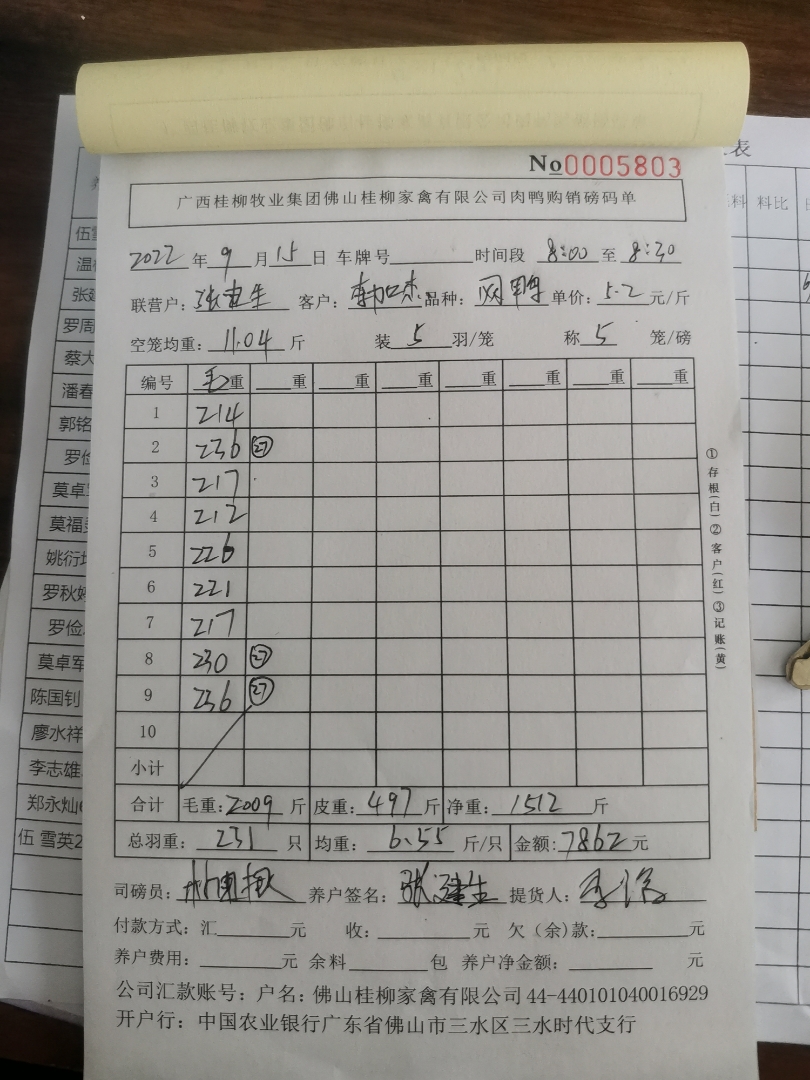 表
料 料比
No 0005803
广西桂柳牧业集团佛山桂柳家禽有限公司肉鸭购销磅码单
2022年9月15日 车牌号 时间段 8:00 至 8:30
联营户: 张建生 客户: 品种: 网鸭 单价: 5.2 元/斤
空笼均重: 11.04 斤 装 5 羽/笼 称 5 笼/磅
编号 毛重 重 重 重 重 重 重 重
1 214
2 236 27
3 217
4 212
5 226
6 221
7 217
8 230 27
9 236 27
10
小计
合计 毛重: 2009 斤 皮重: 497 斤 净重: 1512 斤
总羽重: 231 只 均重: 6.55 斤/只 金额: 7862 元
司磅员: 养户签名: 张建生 提货人:
付款方式: 汇 元 收: 元 欠(余)款: 元
养户费用: 元 余料 包 养户净金额: 元
公司汇款账号: 户名: 佛山桂柳家禽有限公司 44-440101040016929
开户行: 中国农业银行广东省佛山市三水区三水时代支行
①存根(白)②客户(红)③记账(黄)
罗周
蔡大
潘春
郭铭
莫卓
莫福
姚衍
罗秋
罗俭
莫卓军
陈国钊
廖水祥
李志雄
郑永灿
伍 雪英2